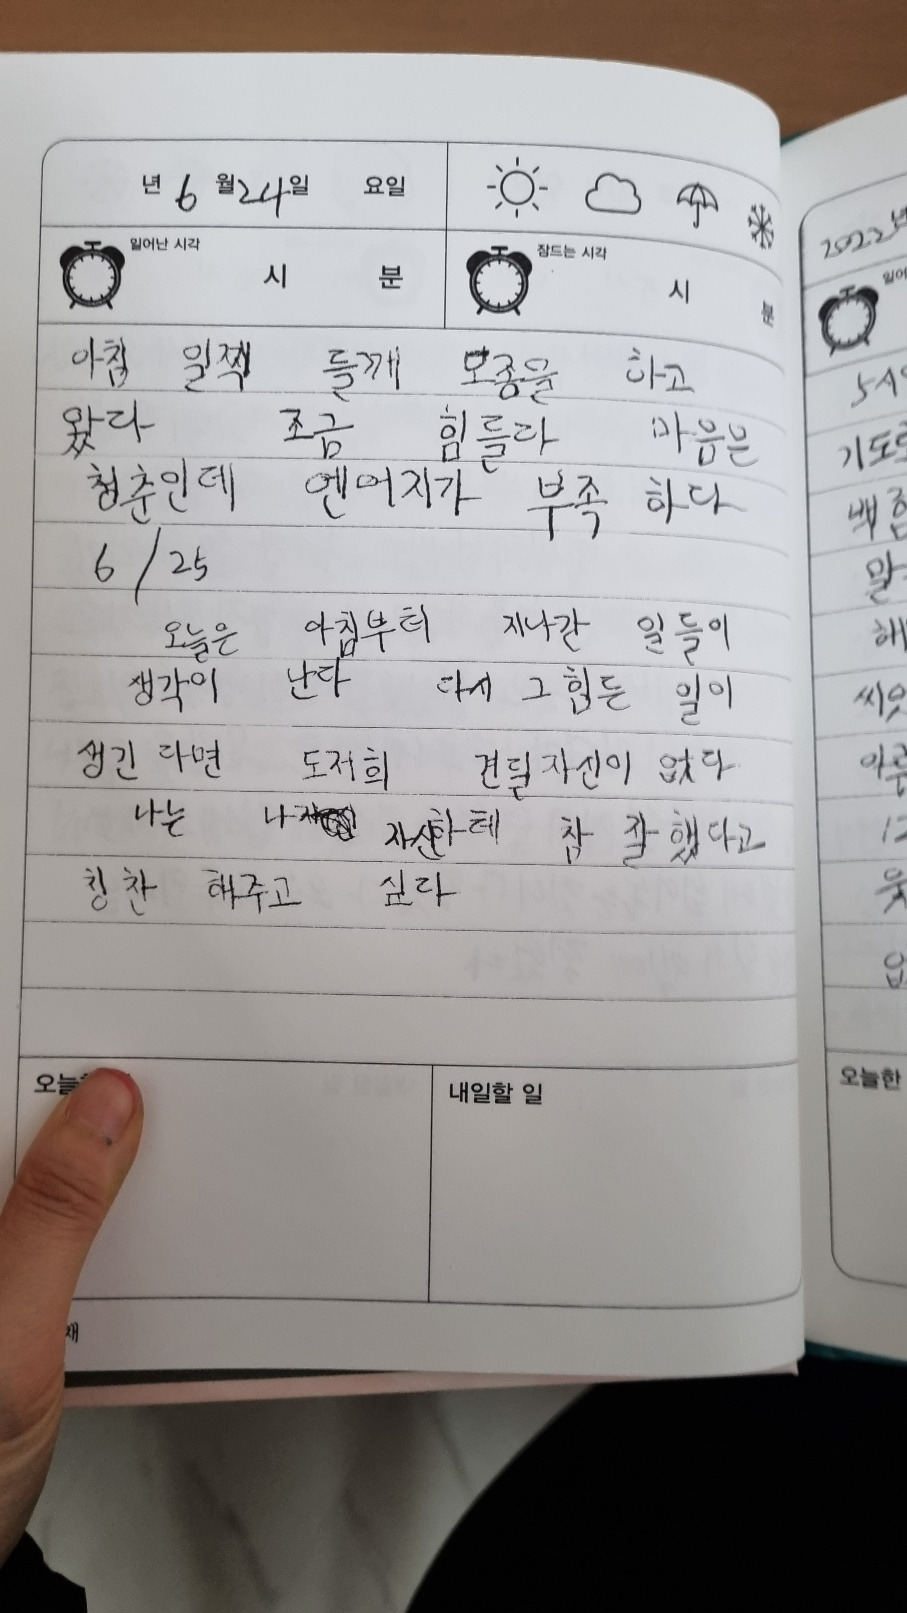 년 6 월 24일 요일
일어난 시각 시 분
잠드는 시각 시 분
아침 일찍 들깨 모종을 하고
왔다 조금 힘들다 마음은
청춘인데 엔어지가 부족 하다
6/25
오늘은 아침부터 지나간 일들이
생각이 난다 다시 그 힘든 일이
생긴 다면 도저희 견딜 자신이 없다
나는 자신한테 참 잘 했다고
칭찬 해주고 싶다
내일할 일
2022년
기도
말
해
씨앗
오늘한